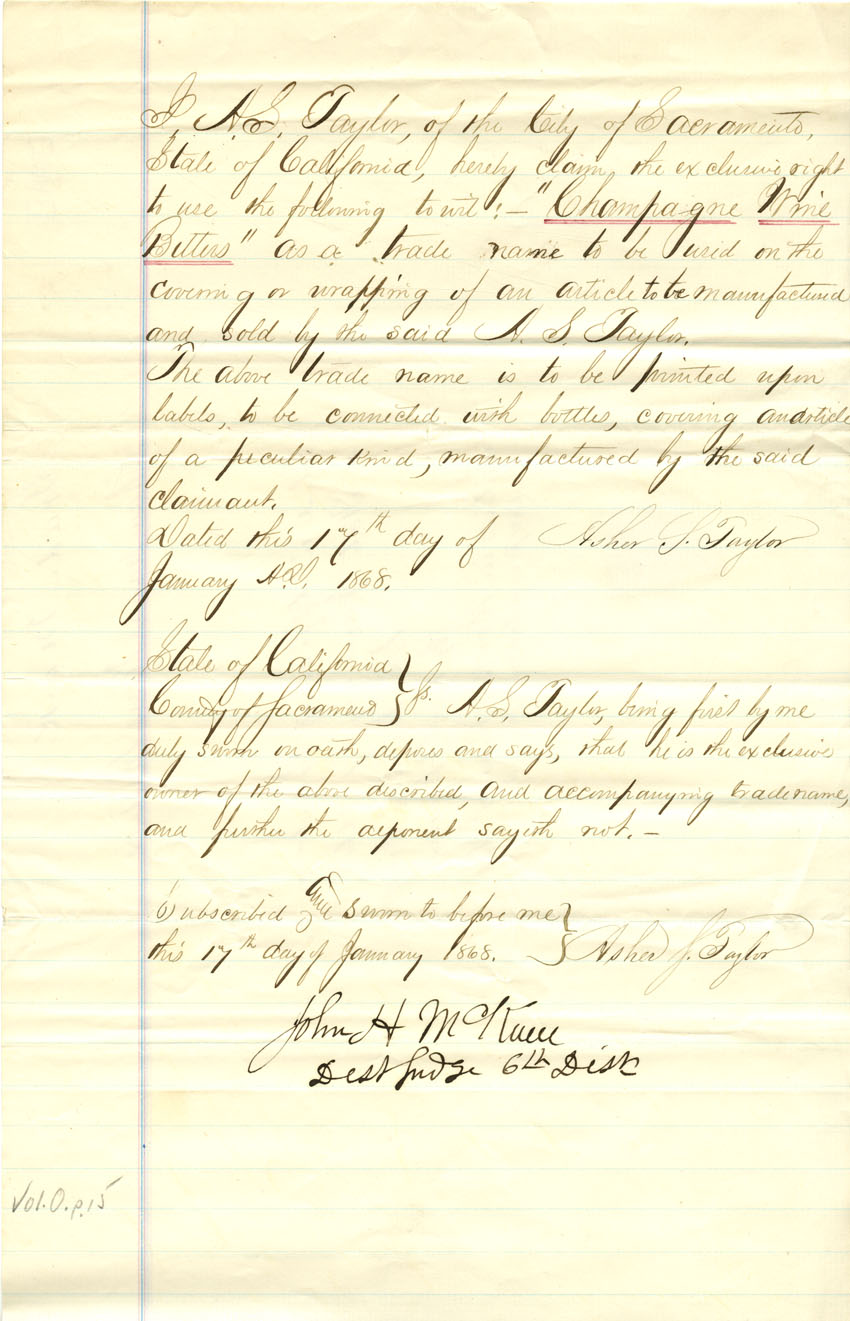 I, A. S. Taylor, of the City of Sacramento,
State of California, hereby claim, the exclusive right
to use the following to wit: — "Champagne Wine
Bitters" as a trade name to be used on the
covering or wrapping of an article to be manufactured
and sold by the said A. S. Taylor.
The above trade name is to be printed upon
labels, to be connected with bottles, covering an article
of a peculiar kind, manufactured by the said
claimant.
Dated this 17th day of Asher S. Taylor
January A.D. 1868.
State of California }
County of Sacramento } ss. A. S. Taylor, being first by me
duly sworn on oath, deposes and says, that he is the exclusive
owner of the above described, and accompanying trade name,
and further the deponent sayeth not. —
Subscribed and sworn to before me }
this 17th day of January 1868. } Asher S. Taylor
John H McKune
Dist Judge 6th Dist
Vol. O. p. 15